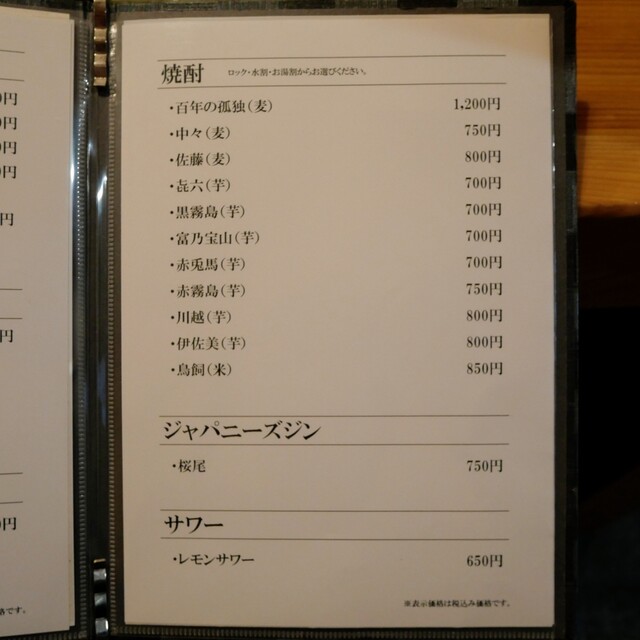 焼酎 ロック・水割・お湯割からお選びください。
・百年の孤独(麦) 1,200円
・中々(麦) 750円
・佐藤(麦) 800円
・㐂六(芋) 700円
・黒霧島(芋) 700円
・富乃宝山(芋) 700円
・赤兎馬(芋) 700円
・赤霧島(芋) 750円
・川越(芋) 800円
・伊佐美(芋) 800円
・鳥飼(米) 850円
ジャパニーズジン
・桜尾 750円
サワー
・レモンサワー 650円
※表示価格は税込み価格です。